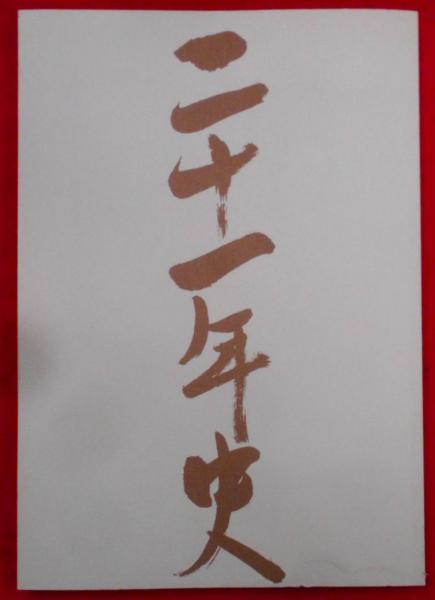 二十一年史